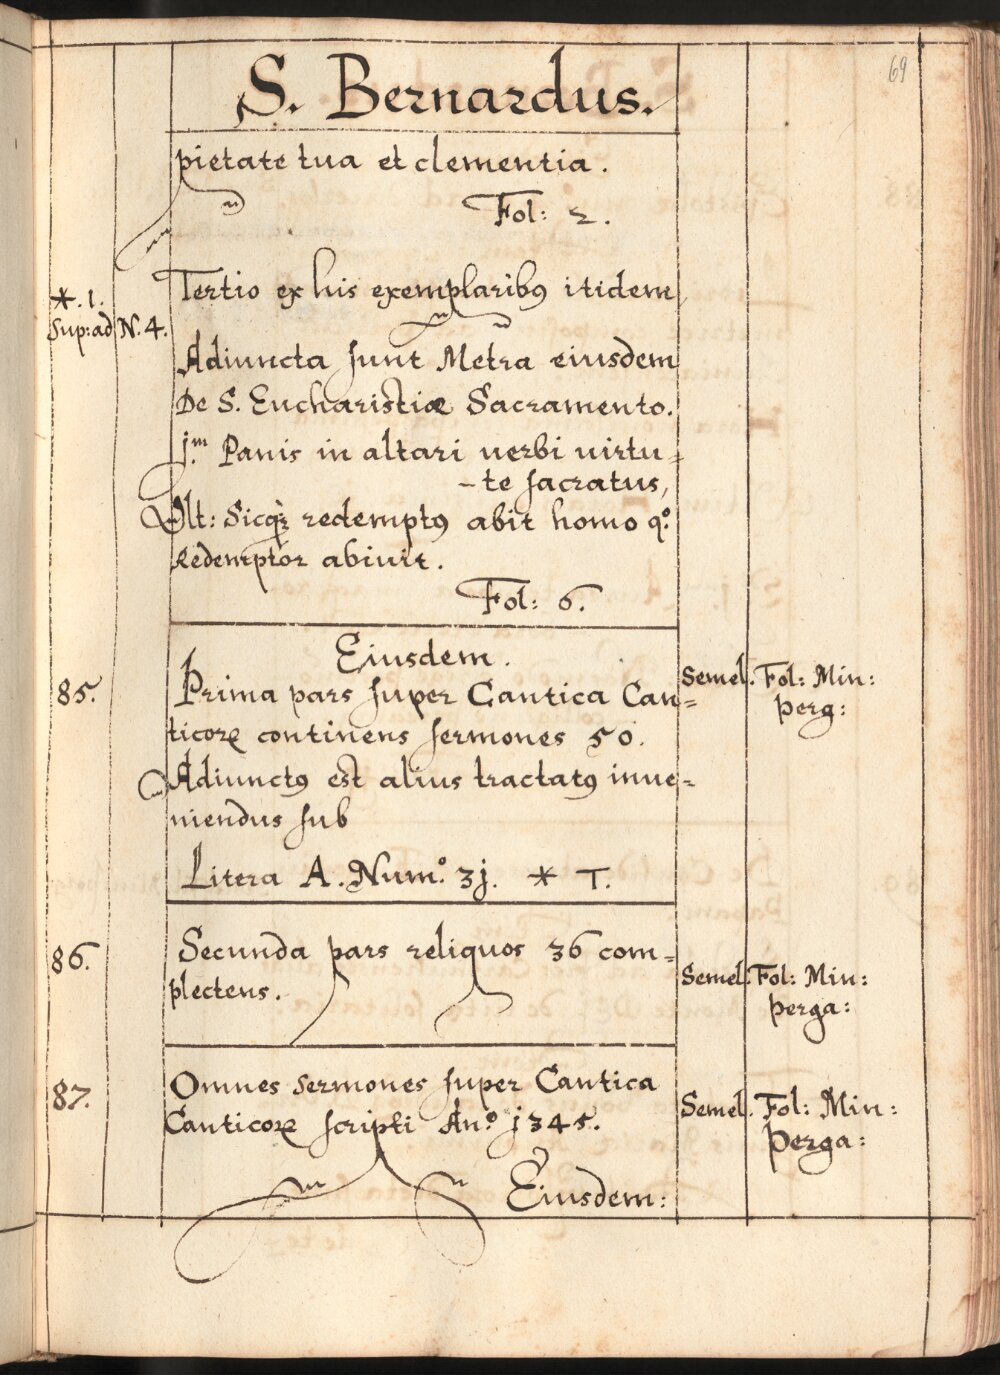 69
S. Bernardus.
pietate tua et clementia.
Fol: 2.
Tertio ex his exemplaribꝰ itidem
*.1.
Sup: ad N. 4.
Adiuncta sunt Metra eiusdem
De S. Eucharistiæ Sacramento.
j.m Panis in altari verbi virtu=
-te sacratus,
Vlt: Sicqꝫ redemptꝰ abit homo q.o
Redemptor abivit.
Fol: 6.
Eiusdem.
85. Prima pars super Cantica Can= Semel. Fol: Min:
ticorꝝ continens sermones 50. perg:
Adiunctꝰ est alius tractatꝰ inve=
niendus sub
Litera A. Num.o 3j. * T.
86. Secunda pars reliquos 36 com= Semel. Fol: Min:
plectens. perga:
87. Omnes sermones super Cantica Semel. Fol: Min:
Canticorꝝ scripti An.o j345. perga:
Eiusdem: